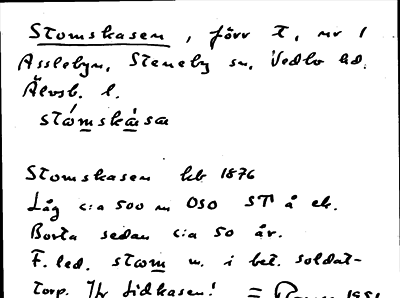 Stomskasen, förr T, nr 1
Asslebyn, Steneby sn, Vedbo hd.
Älvsb. l.
stómskàsa
Stomskasen hb 1876
Låg c:a 500 m OSO ST å ek.
Borta sedan c:a 50 år.
F. led. stom m. i bet. soldat-
torp. Jfr Lidkasen!